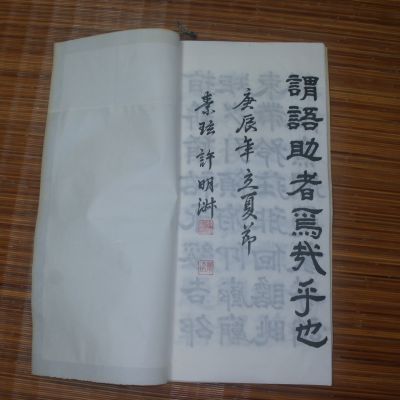 謂語助者焉哉乎也
庚辰年立夏節
素玹許明洲